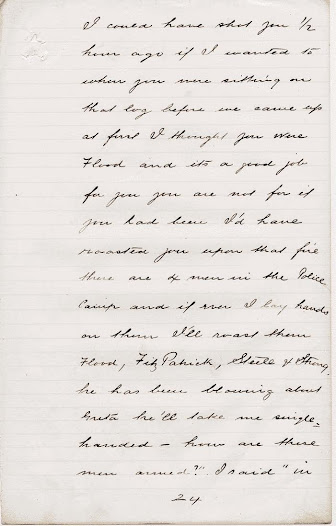 I could have shot you 1/2
hour ago if I wanted to
when you were sitting on
that log before we came up
at first I thought you were
Flood and its a good job
for you you are not for if
you had been I'd have
roasted you upon that fire
there are 4 men in the Police
Camp and if ever I lay hands
on them I'll roast them
Flood, FitzPatrick, Steele & Strong.
he has been blowing about
Greta he'll take me single-
handed - how are these
men armed?" I said "in
24